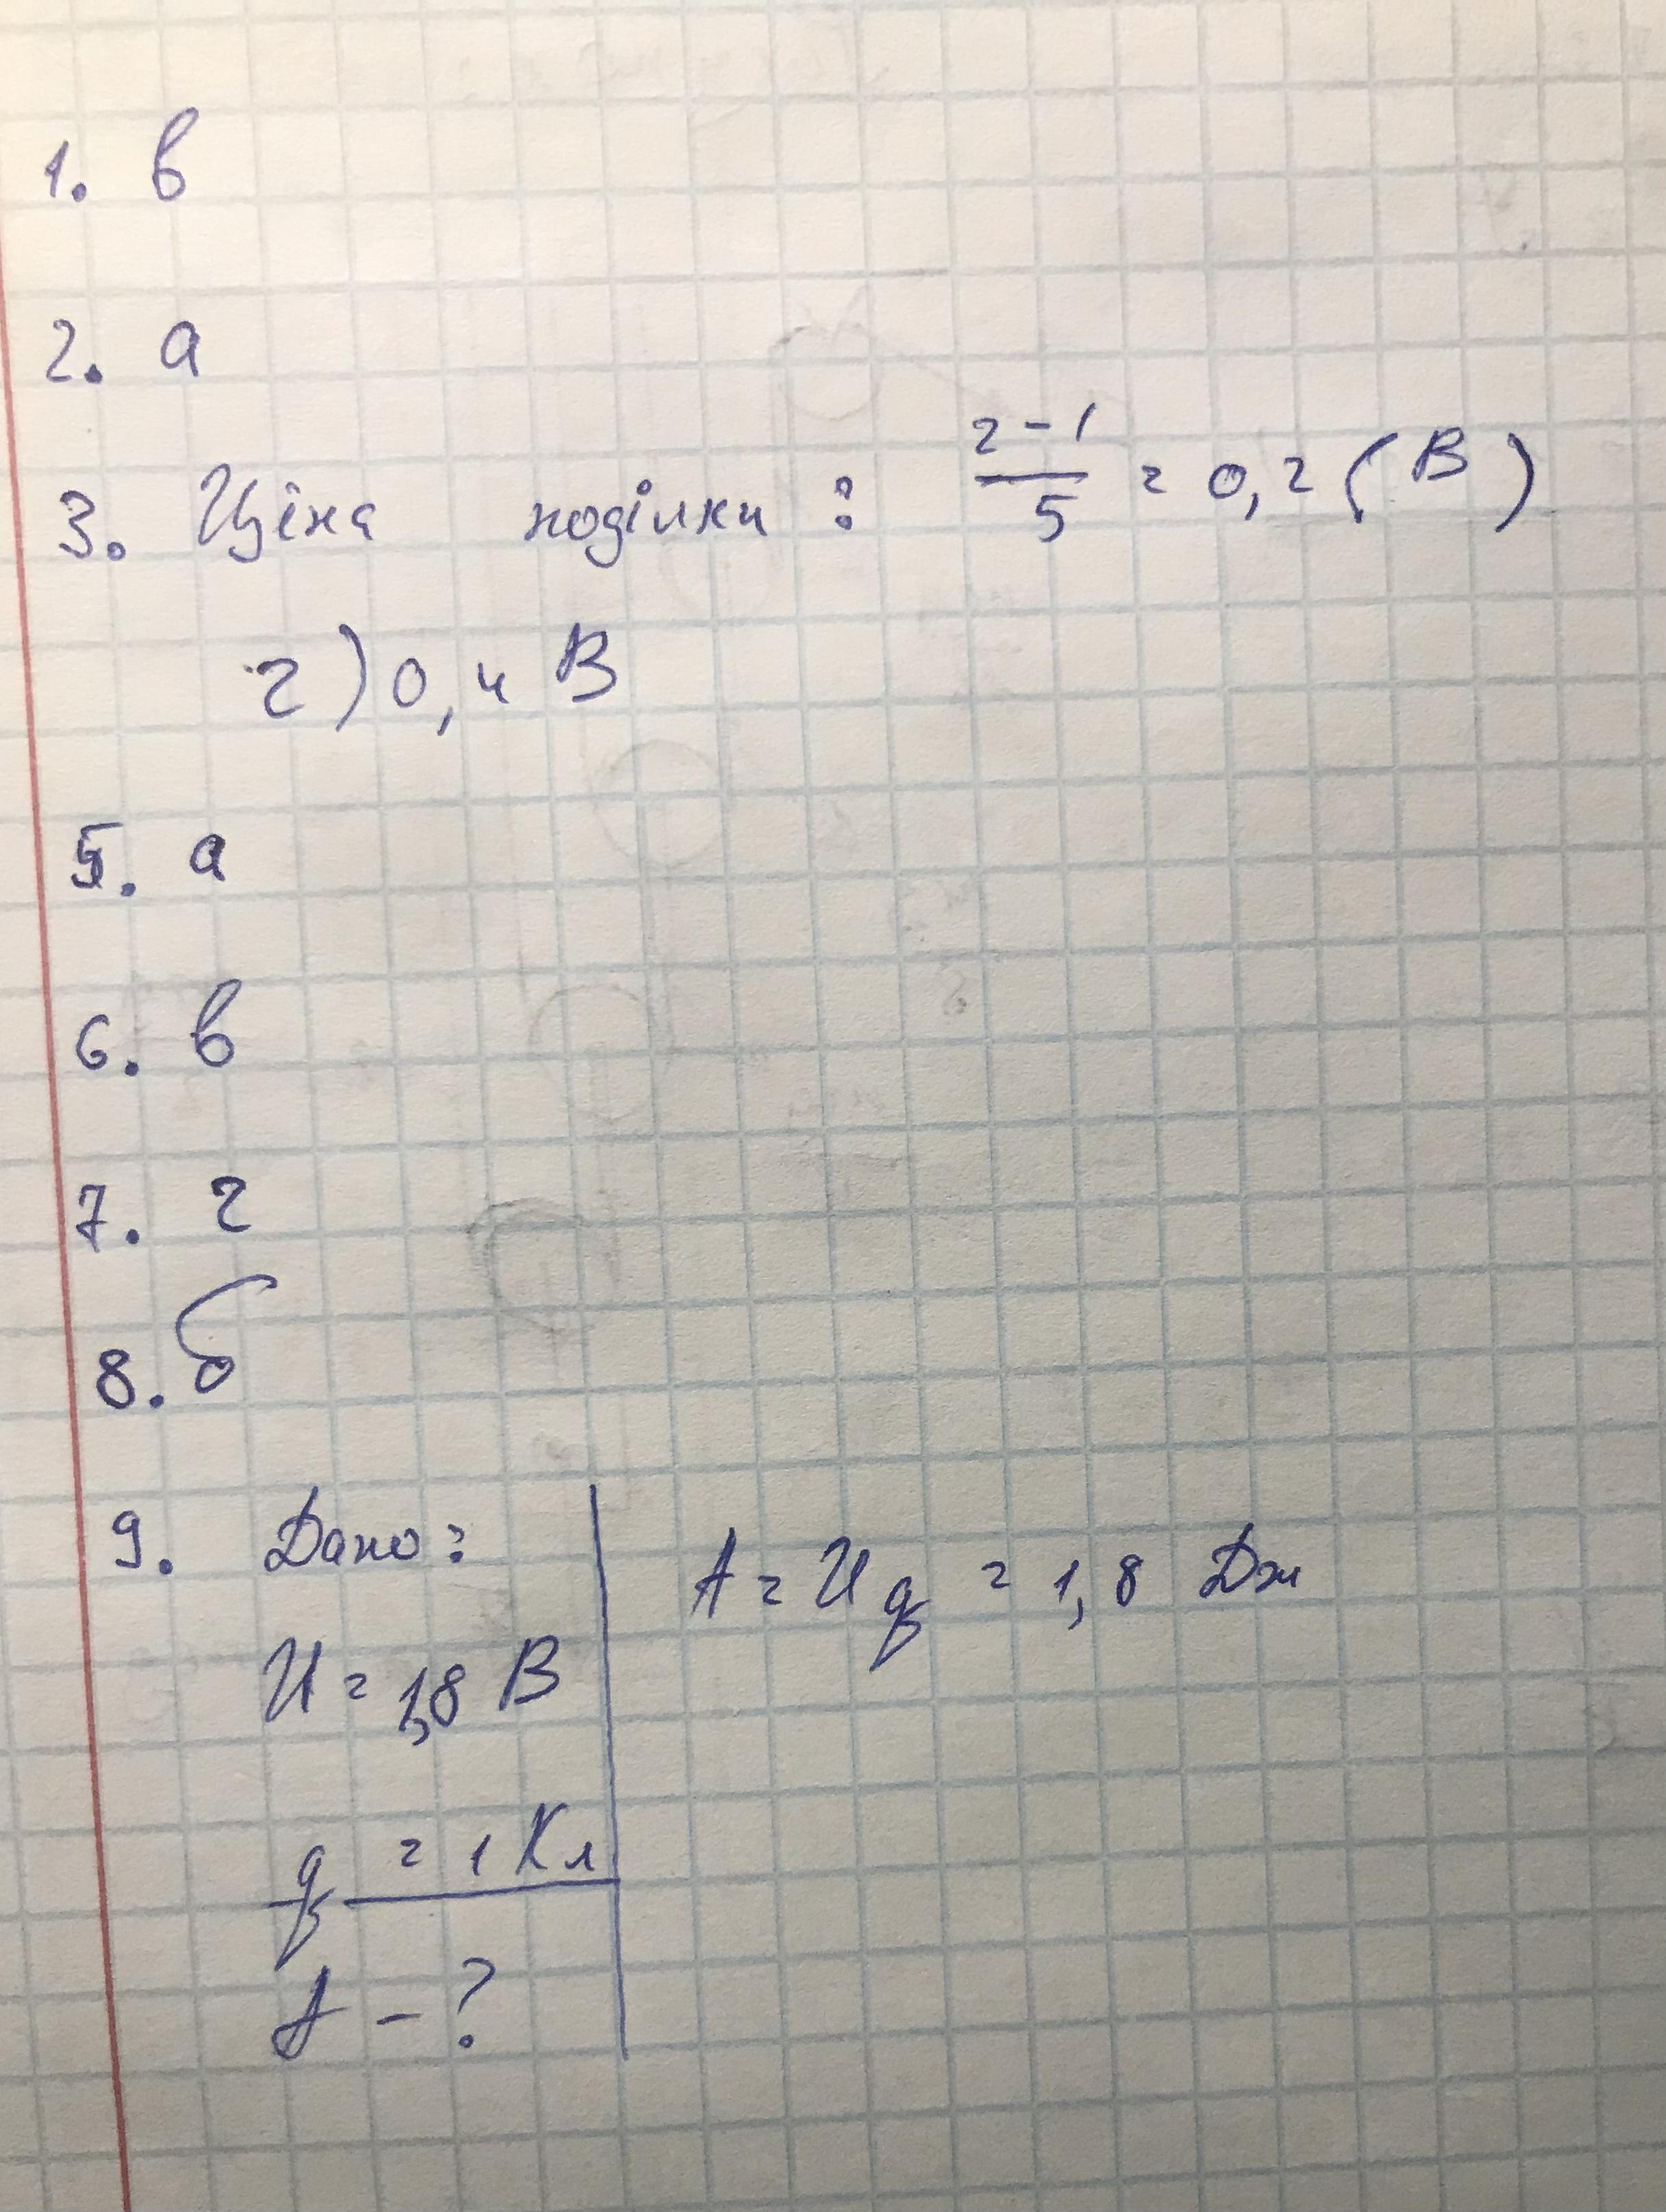 1. в
2. а
3. Ціна поділки: (2-1)/5 = 0,2 (В)
г) 0,4 В
5. а
6. в
7. г
8. б
9. Дано:
U = 1,8 В
q = 1 Кл
A - ?
A = Uq = 1,8 Дж